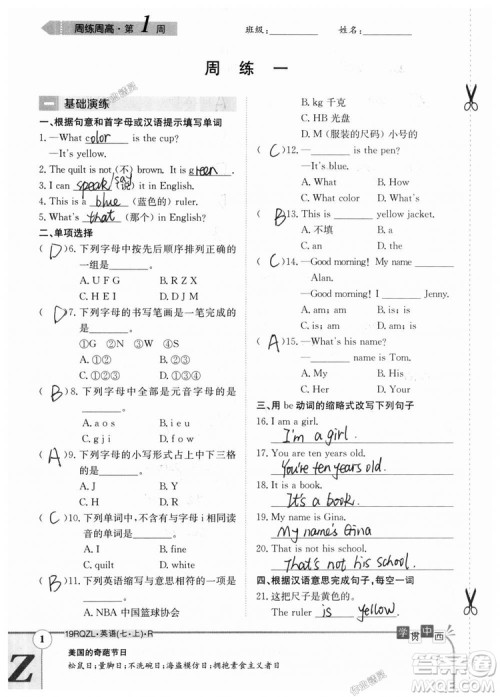 周练周高·第1周
班级: 姓名:
周练一
一 基础演练
一、根据句意和首字母或汉语提示填写单词
1. —What color is the cup?
—It's yellow.
2. The quilt is not (不) brown. It is green.
3. I can speak say (说) it in English.
4. This is a blue (蓝色的) ruler.
5. What's that (那个) in English?
二、单项选择
( D )6. 下列字母中按先后顺序排列正确的一组是
A. U V T B. R Z X
C. H E I D. D J M
( D )7. 下列字母的书写笔画是一笔完成的是
①G ②N ③O ④S
A. ①② B. ②③
C. ①③ D. ③④
( B )8. 下列字母中全部是元音字母的是
A. a o s B. i e u
C. g j i D. c f w
( A )9. 下列字母的小写形式占中下三格的是
A. J B. N
C. I D. Y
( C )10. 下列单词中,不含有与字母 i 相同读音的单词是
A. I B. fine
C. quilt D. hi
( B )11. 下列英语缩写与意思相符的一项是
A. NBA 中国篮球协会
B. kg 千克
C. HB 光盘
D. M (服装的尺码) 小号的
( C )12. — is the pen?
—It's blue.
A. How B. What
C. What color D. This
( B )13. This is yellow jacket.
A. 不填 B. a
C. an D. /
( C )14. —Good morning! My name Alan.
—Good morning! I Jenny.
A. is; is B. am; is
C. is; am D. am; am
( A )15. —What's name?
— name is Tom.
A. His B. My
C. He D. Her
三、用 be 动词的缩略式改写下列句子
16. I am a girl.
I'm a girl.
17. You are ten years old.
You're ten years old.
18. It is a book.
It's a book.
19. My name is Gina.
My name's Gina
20. That is not his school.
That's not his school.
四、根据汉语意思完成句子,每空一词
21. 这把尺子是黄色的。
The ruler is yellow.
1
19RQZL·英语(七·上)·R
学贯中西
美国的奇葩节日
松鼠日;童脚日;不洗碗日;海盗模仿日;拥抱素食主义者日